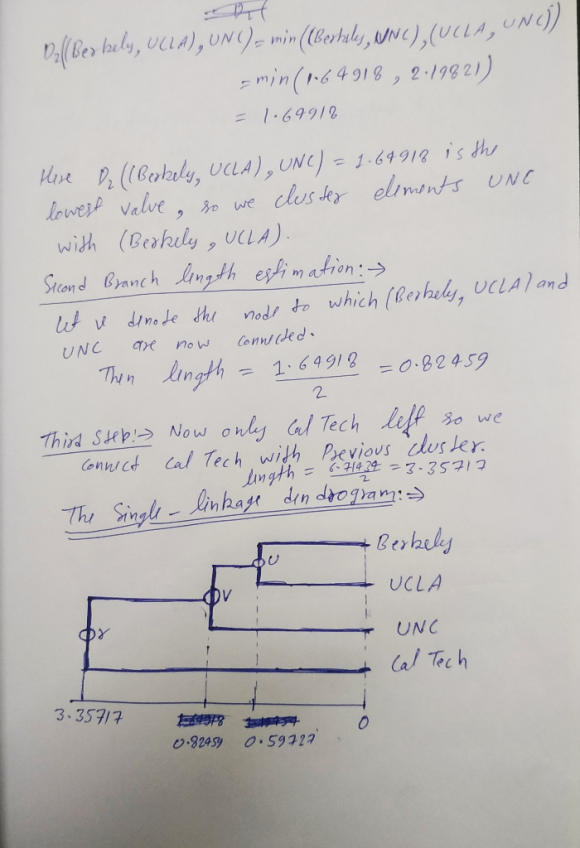 D₂((Berkely, UCLA), UNC) = min((Berkely, UNC), (UCLA, UNC))
= min(1.64918, 2.19821)
= 1.64918
Here D₂((Berkely, UCLA), UNC) = 1.64918 is the
lowest value, so we cluster elements UNC
with (Berkely, UCLA).
Second Branch length estimation:→
let v denote the node to which (Berkely, UCLA) and
UNC are now connected.
Then length = 1.64918/2 = 0.82459
Third Step:→ Now only Cal Tech left so we
connect Cal Tech with Previous cluster.
length = 6.71434/2 = 3.35717
The Single-linkage dendrogram:→
Berkely
U
UCLA
V
UNC
r
Cal Tech
3.35717 0
0.82459 0.59727